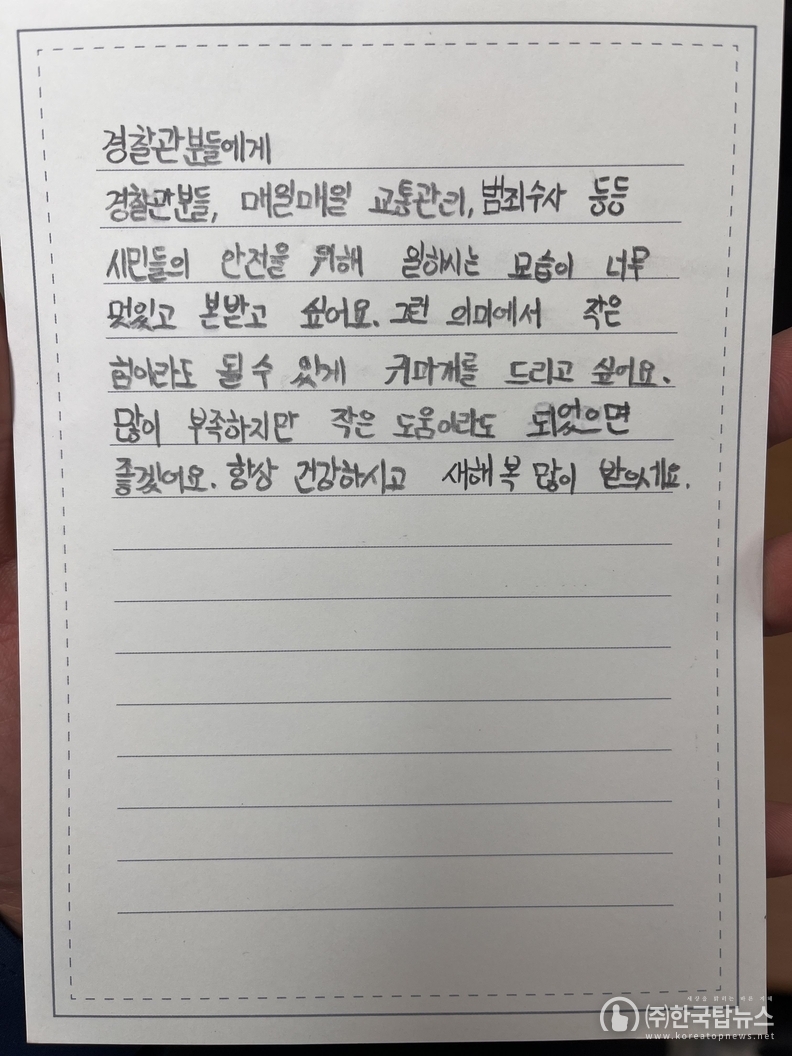 경찰관분들에게
경찰관분들, 매일매일 교통관리, 범죄수사 등등
시민들의 안전을 위해 일하시는 모습이 너무
멋있고 본받고 싶어요. 그런 의미에서 작은
힘이라도 될 수 있게 귀마개를 드리고 싶어요.
많이 부족하지만 작은 도움이라도 되었으면
좋겠어요. 항상 건강하시고 새해 복 많이 받으세요.
세상을 밝히는 바른 언론
(주)한국탑뉴스
www.koreatopnews.net